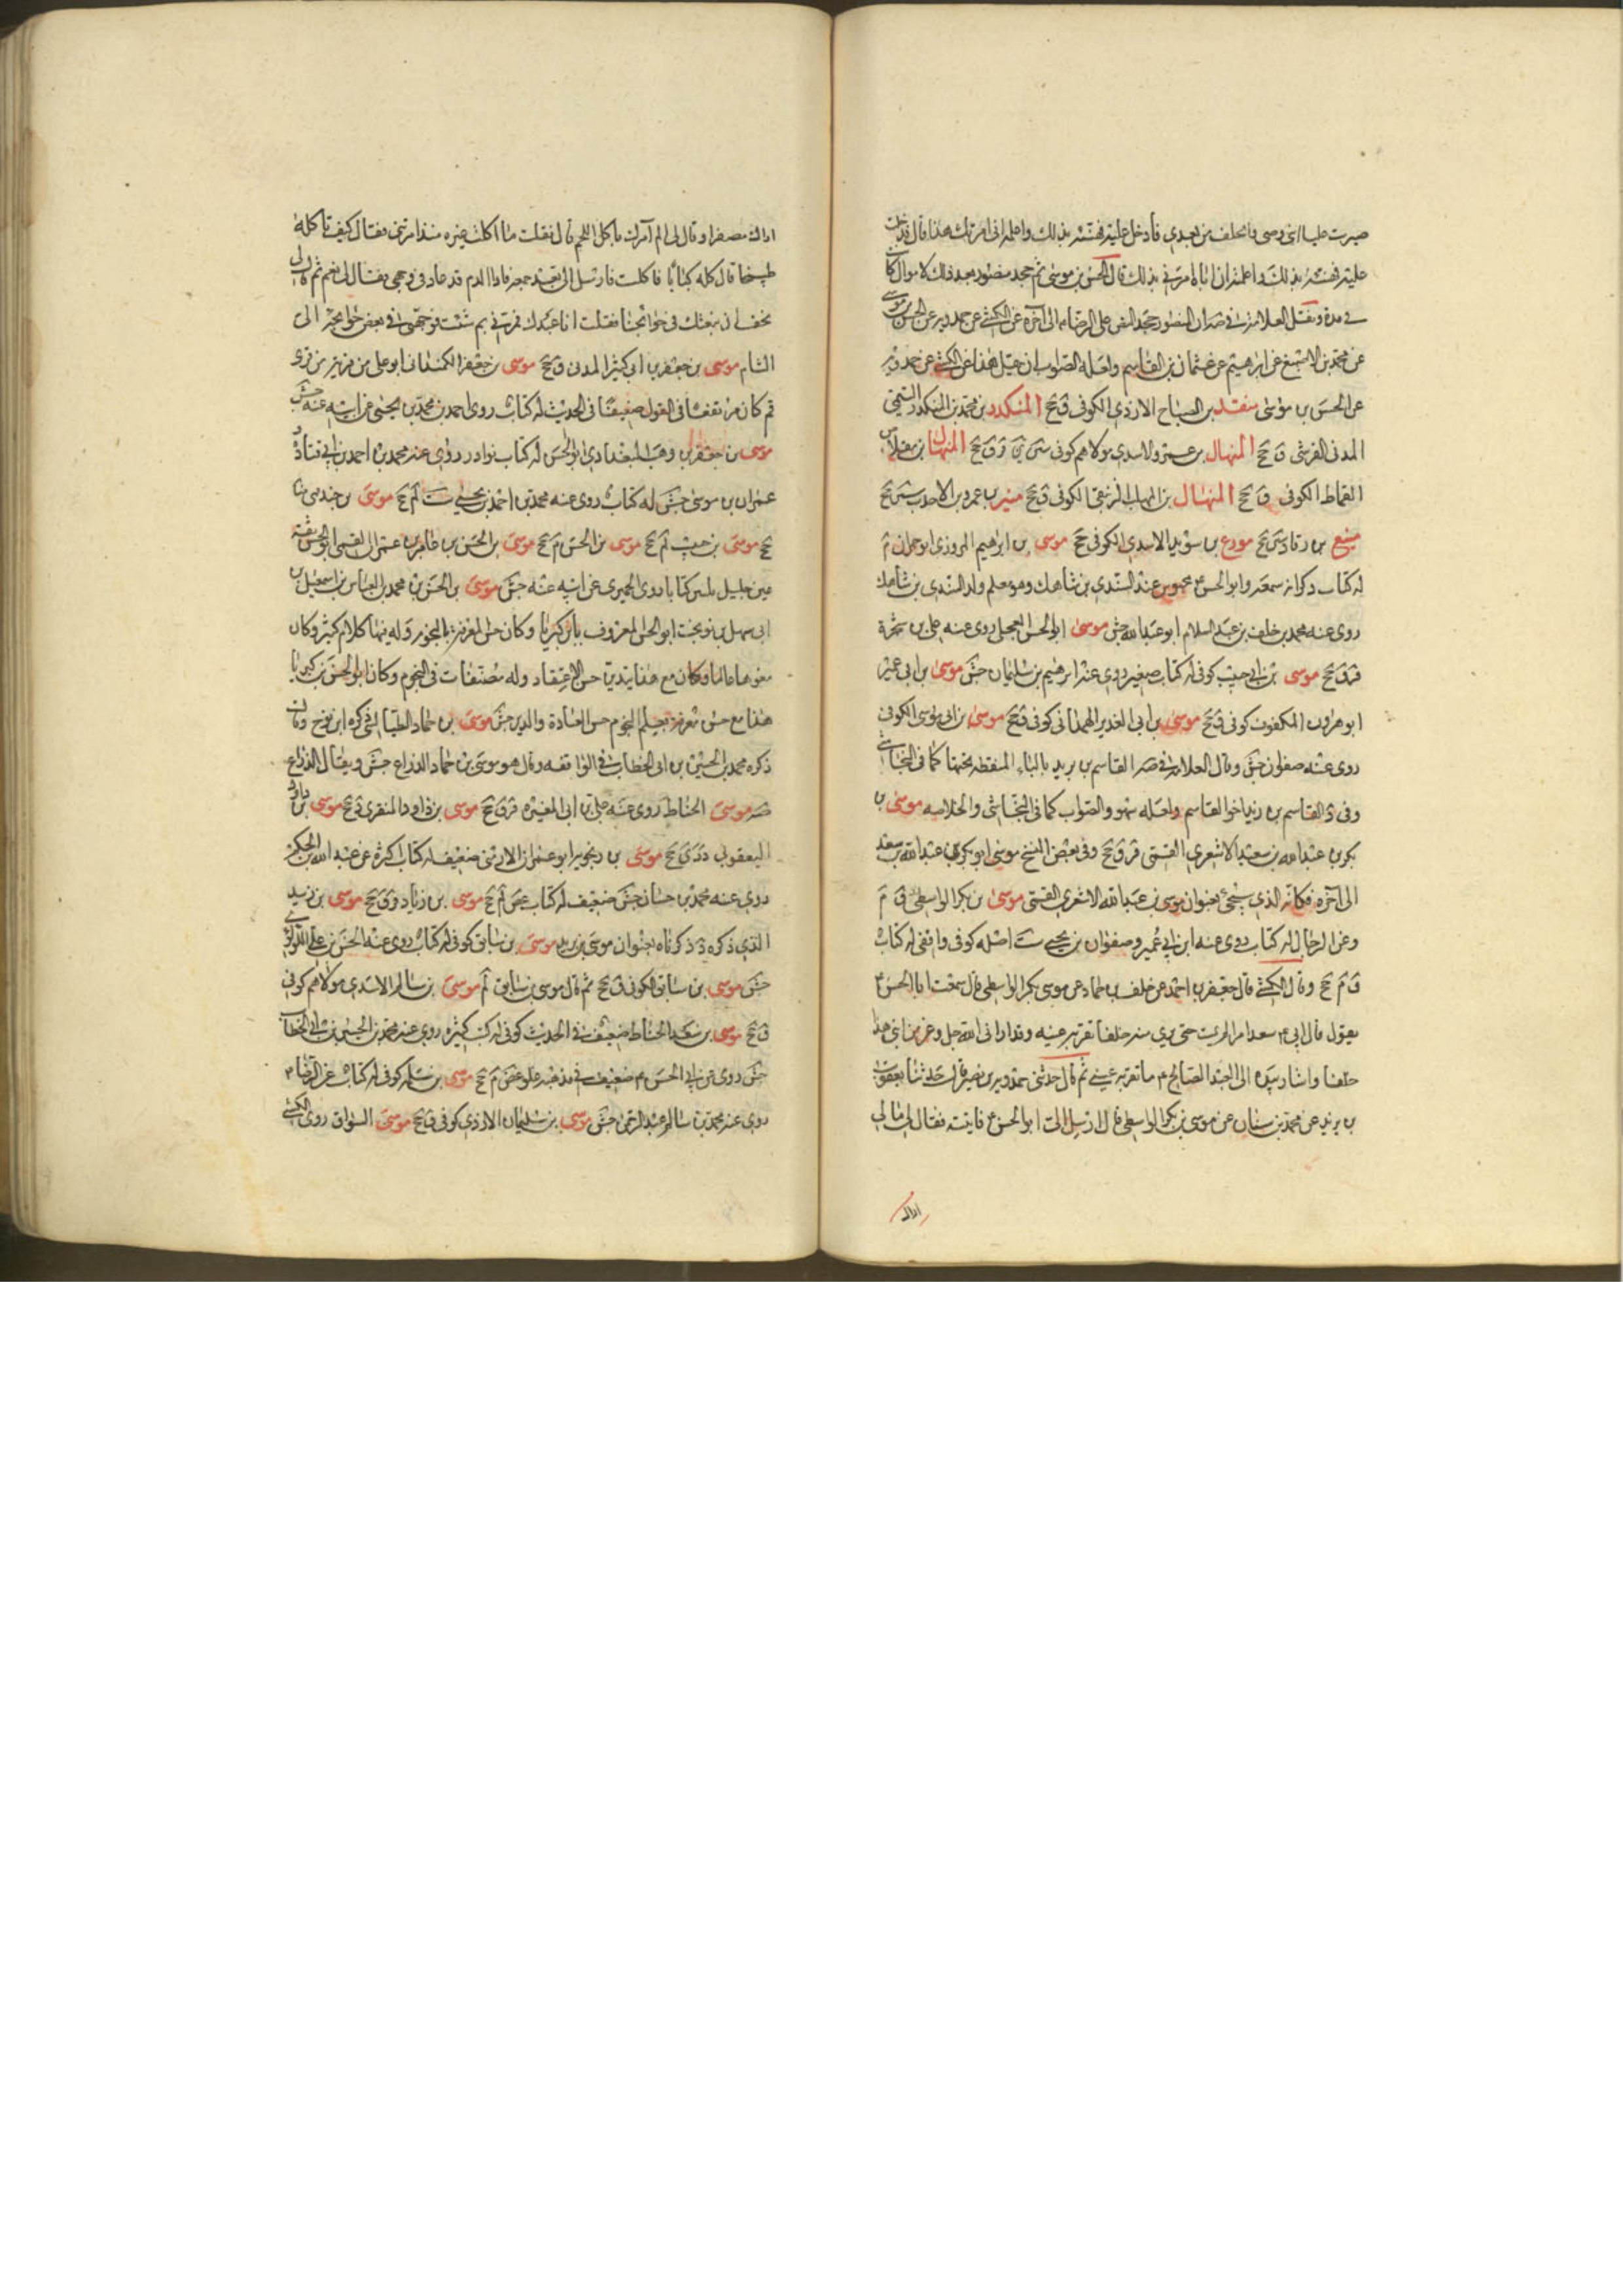 صيرت عليا ابني وصيي والخلف من بعدي فادخل عليه فهنئه بذلك واعلمه اني امرتك هذا قال فدخلت
عليه فهنئته بذلك واعلمته ان اباه امرني بذلك قال الحسن بن موسى ثم جحد منصور بعد ذلك لاموال كانت
في يده ونقل العلامة في صه ان المنصور جحد النص على الرضا ع الى آخره عن الكشي عن حمدويه عن الحسن بن موسى
عن محمد بن الاصبغ عن ابرهيم عن عثمان بن القاسم ولعله الصواب ان قيل هذا عن الكشي عن حمدويه
عن الحسن بن موسى منقذ بن الصباح الازدي الكوفي ق جخ المنكدر بن محمد بن المنكدر التيمي
المدني القرشي ق جخ المنهال بن عمرو الاسدي مولاهم كوفي سين ين ق جخ المنهال بن مقلاص
القماط الكوفي ق جخ المنهال بن الكوفي ق جخ منير بن عمرو بن الاحدب سين جخ
منيع بن رقاد سين جخ مودع بن سويد الاسدي الكوفي جخ موسى بن ابراهيم المروزي ابو حمران م
له كتاب ذكر انه سمعه وابو الحسن ع محبوس عند السندي بن شاهك وهو معلم ولد السندي بن شاهك
روى عنه محمد بن خلف بن عبد السلام ابو عبد الله جش موسى ابو الحسن العجلي روى عنه علي بن شجرة
ق جخ موسى بن ابي حبيب كوفي له كتاب صغير روى عنه ابرهيم بن سليمان جش موسى بن ابي عمير
ابو هرون المكفوف كوفي ق جخ موسى بن ابي الغدير الهمداني كوفي ق جخ موسى بن ابي موسى الكوفي
روى عنه صفوان جش وقال العلامة في صه القاسم بن بريد بالباء المنقطة تحتها كما في النجاشي
وفي د القاسم بن زيد اخوا القاسم ولعله سهو والصواب كما في النجاشي والخلاصه موسى بن
بكر بن عبد الله بن سعيد الاشعري القمي ق جخ وفي بعض النسخ موسى ابو بكر بن عبد الله بن سعد
الى آخره فكانه الذي سيجيء بعنوان موسى بن عبد الله الاشعري القمي موسى بن بكر الواسطي ق م
وعن الرجال له كتاب روى عنه ابن ابي عمير وصفوان بن يحيى ست اصله كوفي واقفي له كتاب
ق م جخ وقال الكشي قال جعفر بن احمد عن خلف بن حماد عن موسى بكر الواسطي قال سمعت ابا الحسن ع
يقول قال ابي ع سعد امرؤ لم يمت حتى يري منه خلفا تقر به عينه وقد اراني الله جل وعز من ابني هذا
خلفا واشار بيده الى العبد الصالح ع ما تقر به عيني ثم قال حدثني حمدويه بن نصير قال حدثنا يعقوب
بن يزيد عن محمد بن سنان عن موسى بن بكر الواسطي قال ارسل الى ابو الحسن ع فاتيته فقال لي ما لي
اراك
اراك مصفرا وقال لي الم آمرك باكل اللحم قال فقلت ما اكلت غيره منذ امرتني فقال كيف تاكله
طبيخا قال كله كبابا فاكلت فارسل الى بعد جمعة فاذا الدم قد عاد في وجهي فقال لي نعم ثم قال لي
يخف ان نبعثك في حوائجنا فقلت انا عبدك فمرني بم شئت فوجهني في بعض حوائجه الى
الشام موسى بن جعفر بن ابي كثير المدني ق جخ موسى بن جعفر الكمنداني ابو علي من قرية من قرى
قم كان مرتفعا في القول ضعيفا في الحديث له كتاب روى احمد بن محمد بن يحيى عن ابيه عنه جش
موسى بن جعفر بن وهب البغدادي ابو الحسن له كتاب نوادر روى عنه محمد بن احمد بن ابي قتادة
عمران بن موسى جش له كتاب روى عنه محمد بن احمد بن يحيى ست لم جخ موسى بن جندب
جخ موسى بن حبيب لم جخ موسى بن الحسن م جخ موسى بن الحسن بن عامر بن عمران القمي ابو الحسن ثقة
عين جليل ثلثين كتابا روى الحميري عن ابيه عنه جش موسى بن الحسن بن محمد بن العباس بن اسمعيل بن
ابي سهل بن نوبخت ابو الحسن المعروف بابن كبريا وكان حسن المعرفة بالنجوم وله فيها كلام كثير وكان
مفوها عالما وكان مع هذا يتدين حسن الاعتقاد وله مصنفات في النجوم وكان ابو الحسن بن كبريا
هذا مع حسن معرفته بعلم النجوم حسن العبادة والدين جش موسى بن حماد الطيالسي ذكره ابن نوح وقال
ذكره محمد بن الحسين بن ابي الخطاب في الواقفه وقال هو موسى بن حماد الذراع جش ويقال الذراع
صه موسى الحناط روى عنه علي بن ابي المغيره ق جخ موسى بن داود المنقري ق جخ موسى بن داود
اليعقوبي جخ موسى بن رنجويه ابو عمران الارمني ضعيف له كتاب اكثره عن عبد الله بن الحكم
روى عنه محمد بن حسان جش ضعيف له كتاب غض لم جخ موسى بن زياد ق جخ موسى بن زيد
الذي ذكره د ذكرناه بعنوان موسى بن يزيد موسى بن سابق كوفي له كتاب روى عنه الحسن بن علي اللؤلؤي
جش موسى بن سابق الكوفي ق جخ ثم قال موسى بن سابق لم موسى بن سالم الاسدي مولاهم كوفي
ق جخ موسى بن سعد الحناط ضعيف في الحديث كوفي له كتب كثيره روى عنه محمد بن الحسين بن ابي الخطاب
جش روى عن ابي الحسن ع ضعيف في مذهبه غلو غض م جخ موسى بن سلمه كوفي له كتاب عن الرضا ع
روى عنه محمد بن سالم عبد الرحمن جش موسى بن سليمان الازدي كوفي ق جخ موسى السواق روى الكشي